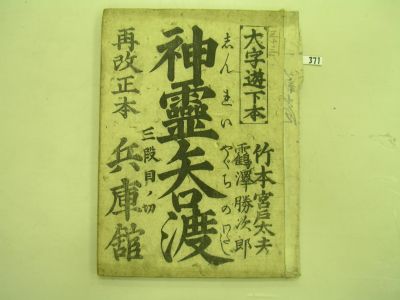 大字遊下本
竹本宮戸太夫
鶴澤勝次郎
神靈矢口渡
しんれいやぐちのわたし
三段目ノ切
再改正本
兵庫舘
371